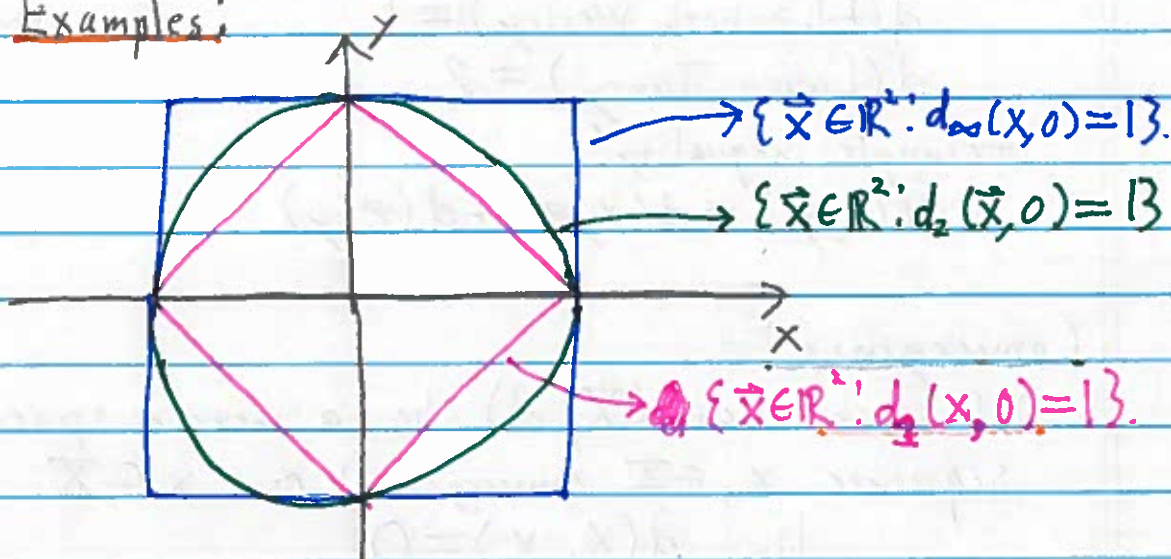 Examples:
y
→{x⃗∈ℝ²: d∞(x,0)=1}.
→{x⃗∈ℝ²: d₂(x⃗,0)=1}
x
→{x⃗∈ℝ²: d₁(x,0)=1}.